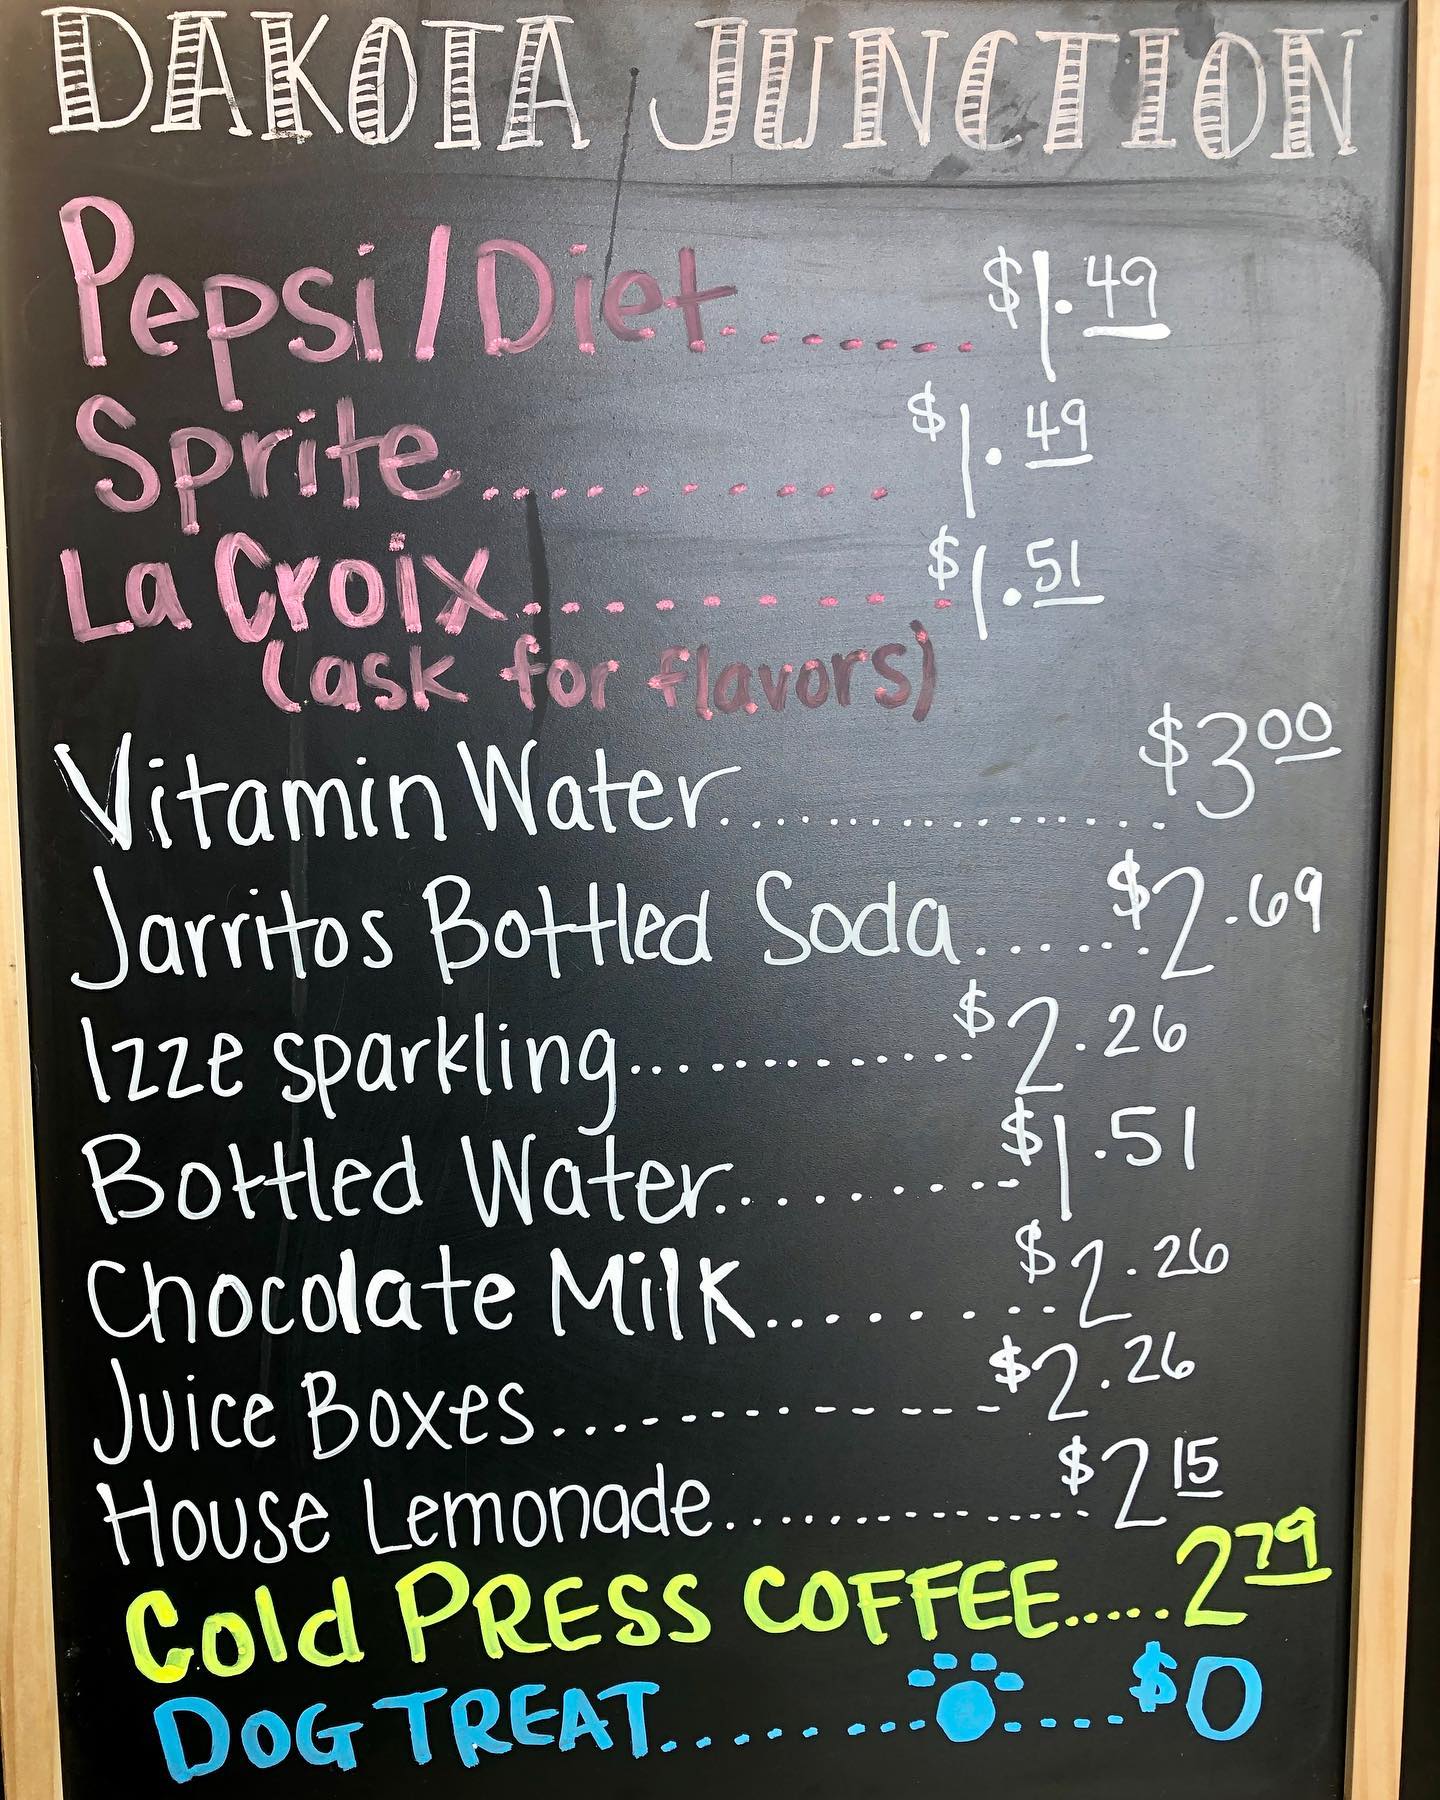 DAKOTA JUNCTION
Pepsi/Diet....... $1.49
Sprite.......... $1.49
La Croix.......... $1.51
(ask for flavors)
Vitamin Water................. $3.00
Jarritos Bottled Soda...... $2.69
Izze sparkling............. $2.26
Bottled Water.......... $1.51
Chocolate Milk........ $2.26
Juice Boxes............. $2.26
House Lemonade............... $2.15
Cold PRESS COFFEE..... 2.79
DOG TREAT............ $0